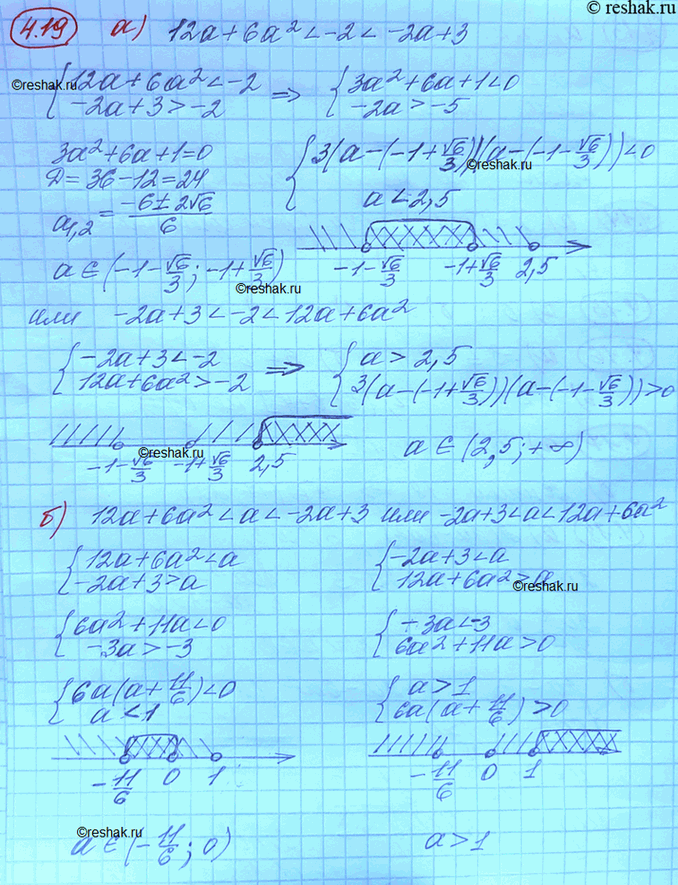 © reshak.ru
4.19 а) 12a+6a²<-2<-2a+3
{12a+6a²<-2 ⇒ {3a²+6a+1<0
{-2a+3>-2 {-2a>-5
©reshak.ru
3a²+6a+1=0 {3(a-(-1+√6/3))(a-(-1-√6/3))<0
D=36-12=24
©reshak.ru
a₁,₂=(-6±2√6)/6 {a<2,5
-1-√6/3 -1+√6/3 2,5
a∈(-1-√6/3; -1+√6/3)
©reshak.ru
или -2a+3<-2<12a+6a²
{-2a+3<-2 ⇒ {a>2,5
{12a+6a²>-2 {3(a-(-1+√6/3))(a-(-1-√6/3))>0
©reshak.ru
-1-√6/3 -1+√6/3 2,5 a∈(2,5;+∞)
б) 12a+6a²<a<-2a+3 или -2a+3<a<12a+6a²
{12a+6a²<a {-2a+3<a
{-2a+3>a {12a+6a²>a
©reshak.ru
{6a²+11a<0 {-3a<-3
{-3a>-3 {6a²+11a>0
{6a(a+11/6)<0 {a>1
{a<1 {6a(a+11/6)>0
-11/6 0 1 -11/6 0 1
©reshak.ru
a∈(-11/6; 0) a>1